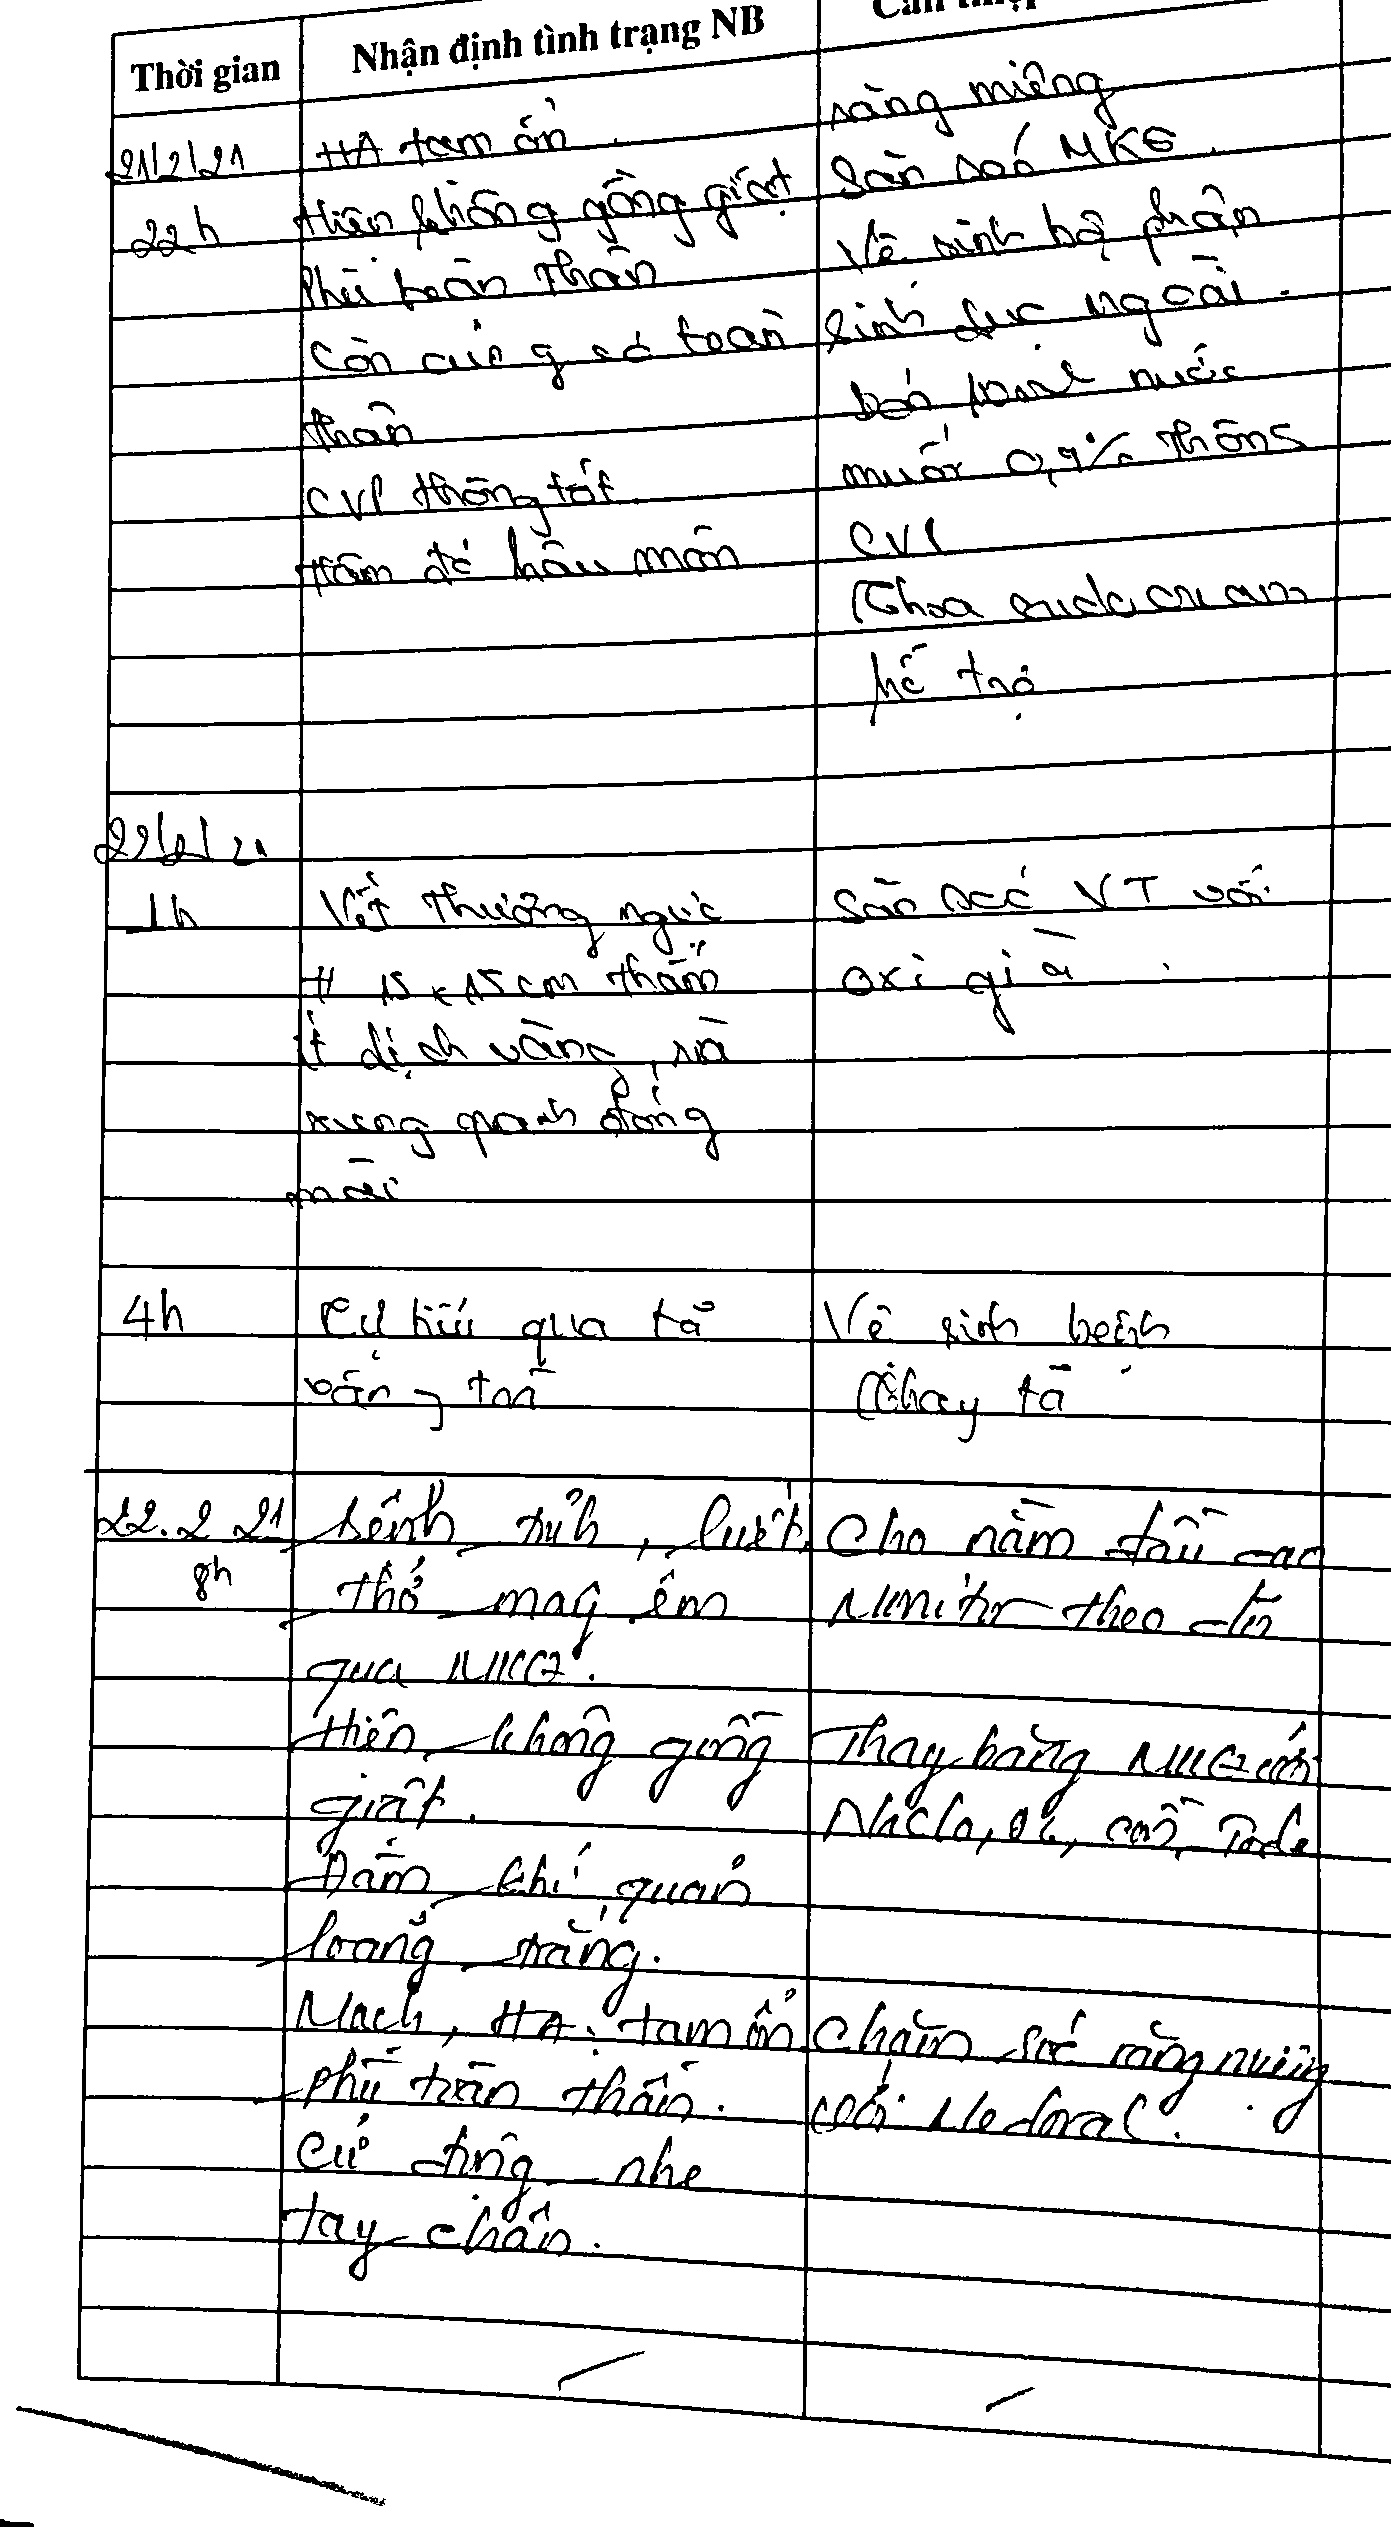 Thời gian
Nhận định tình trạng NB
21/2/21
HA tạm ổn.
răng miệng
22h
Hiện không gồng giật
Săn sóc MKQ.
Phù toàn thân
Vệ sinh bộ phận
Còn cứng cơ toàn
sinh dục ngoài.
thân
nước
CVP thông tốt.
muối 0,9% thông
Hăm đỏ hậu môn
CVP
Thoa
hỗ trợ
22/2/21
1h
Vết thương ngực
Săn sóc VT với
# 15 x 15cm thấm
oxi già.
ít dịch vàng, và
xung quanh đóng
mài
4h
qua tã
Vệ sinh bệnh
vàng
Thay tã
22.2.21
Bệnh tỉnh,
Cho nằm đầu cao
8h
thở máy êm
Monitor theo dõi
qua MKQ.
Hiện không gồng
Thay băng MKQ với
giật.
NaCl 0,9%, cồn,
Đàm khí quản
loãng trắng.
Mạch, HA: tạm ổn
Chăm sóc răng miệng
phù toàn thân.
với Medoral.
Cử động nhẹ
tay chân.